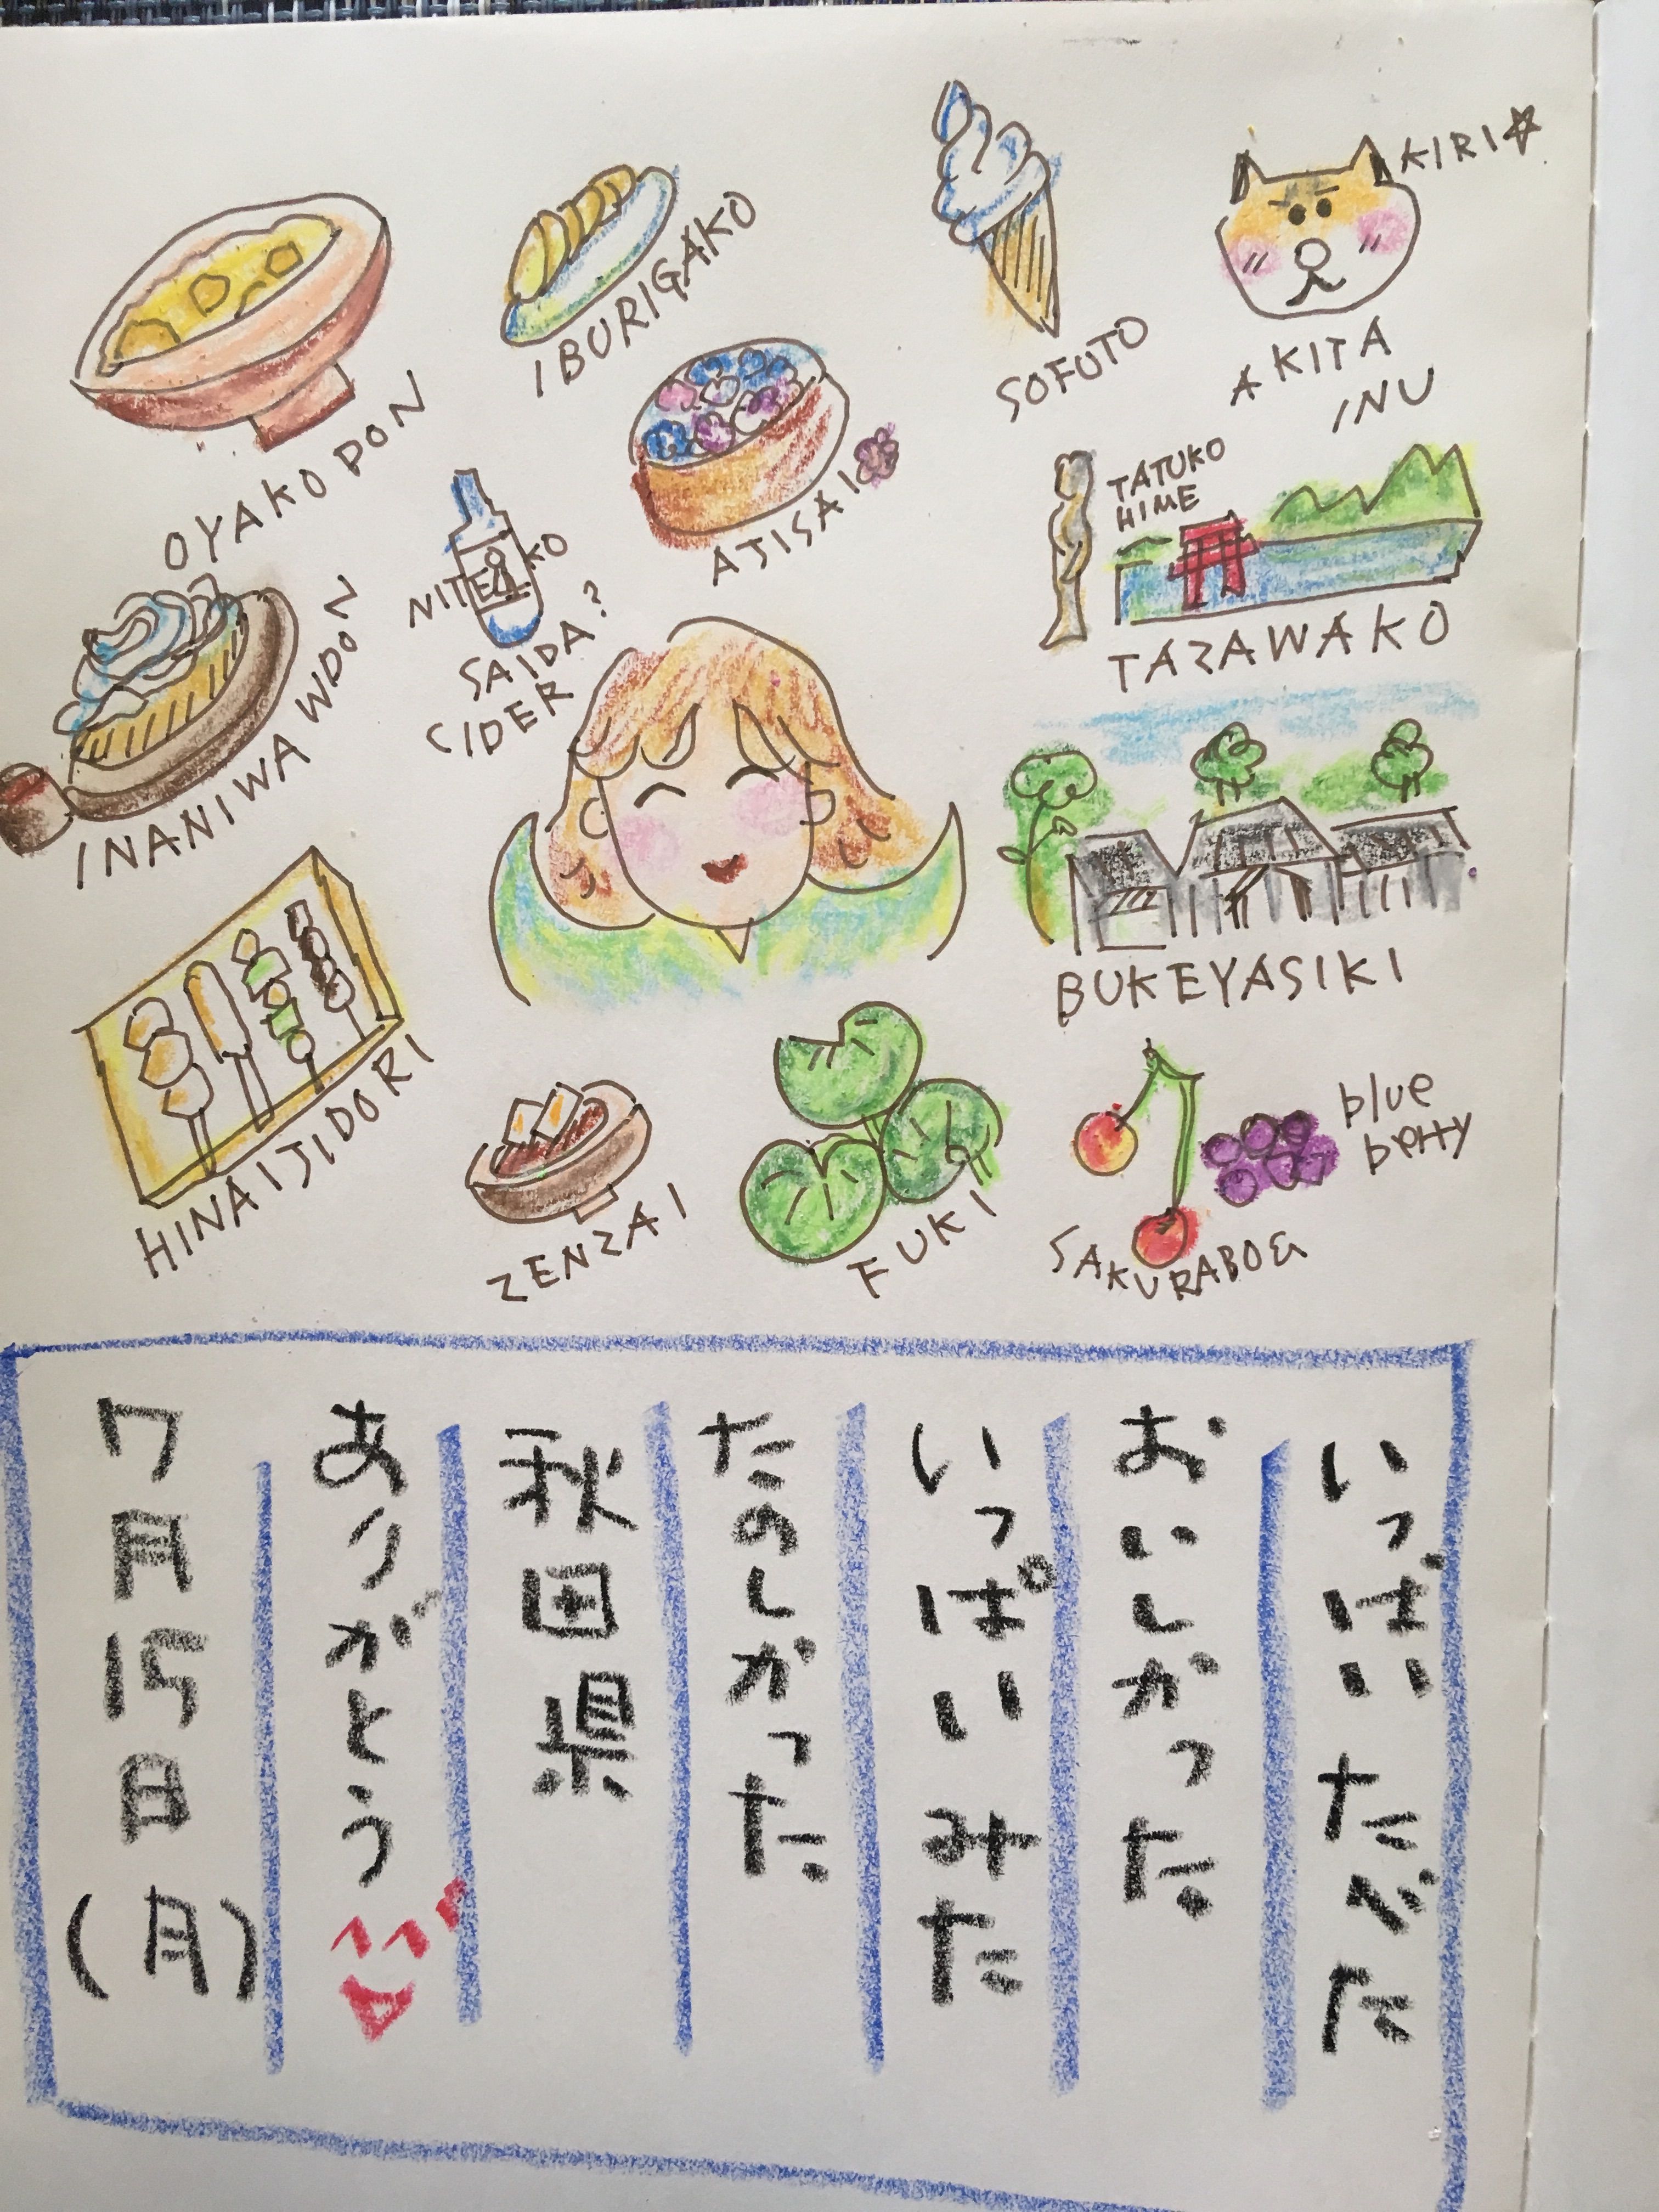 OYAKODON
IBURIGAKO
SOFUTO
KIRI☆
AKITA
INU
AJISAI
TATUKO
HIME
TAZAWAKO
NITEKO
SAIDA?
CIDER
INANIWA WDON
BUKEYASIKI
HINAIJIDORI
ZENZAI
FUKI
SAKURABO
blue
berry
いっばい ただべた
おいしかった
いっぱい みた
たのしかった
秋田県
ありがとう
7月15日(月)